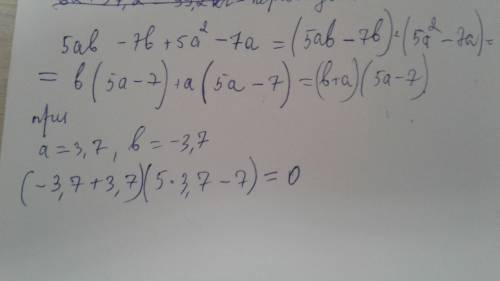 5ab - 7b + 5a² - 7a = (5ab - 7b) + (5a² - 7a) =
= b(5a - 7) + a(5a - 7) = (b + a)(5a - 7)
при
a = 3,7, b = -3,7
(-3,7 + 3,7)(5·3,7 - 7) = 0